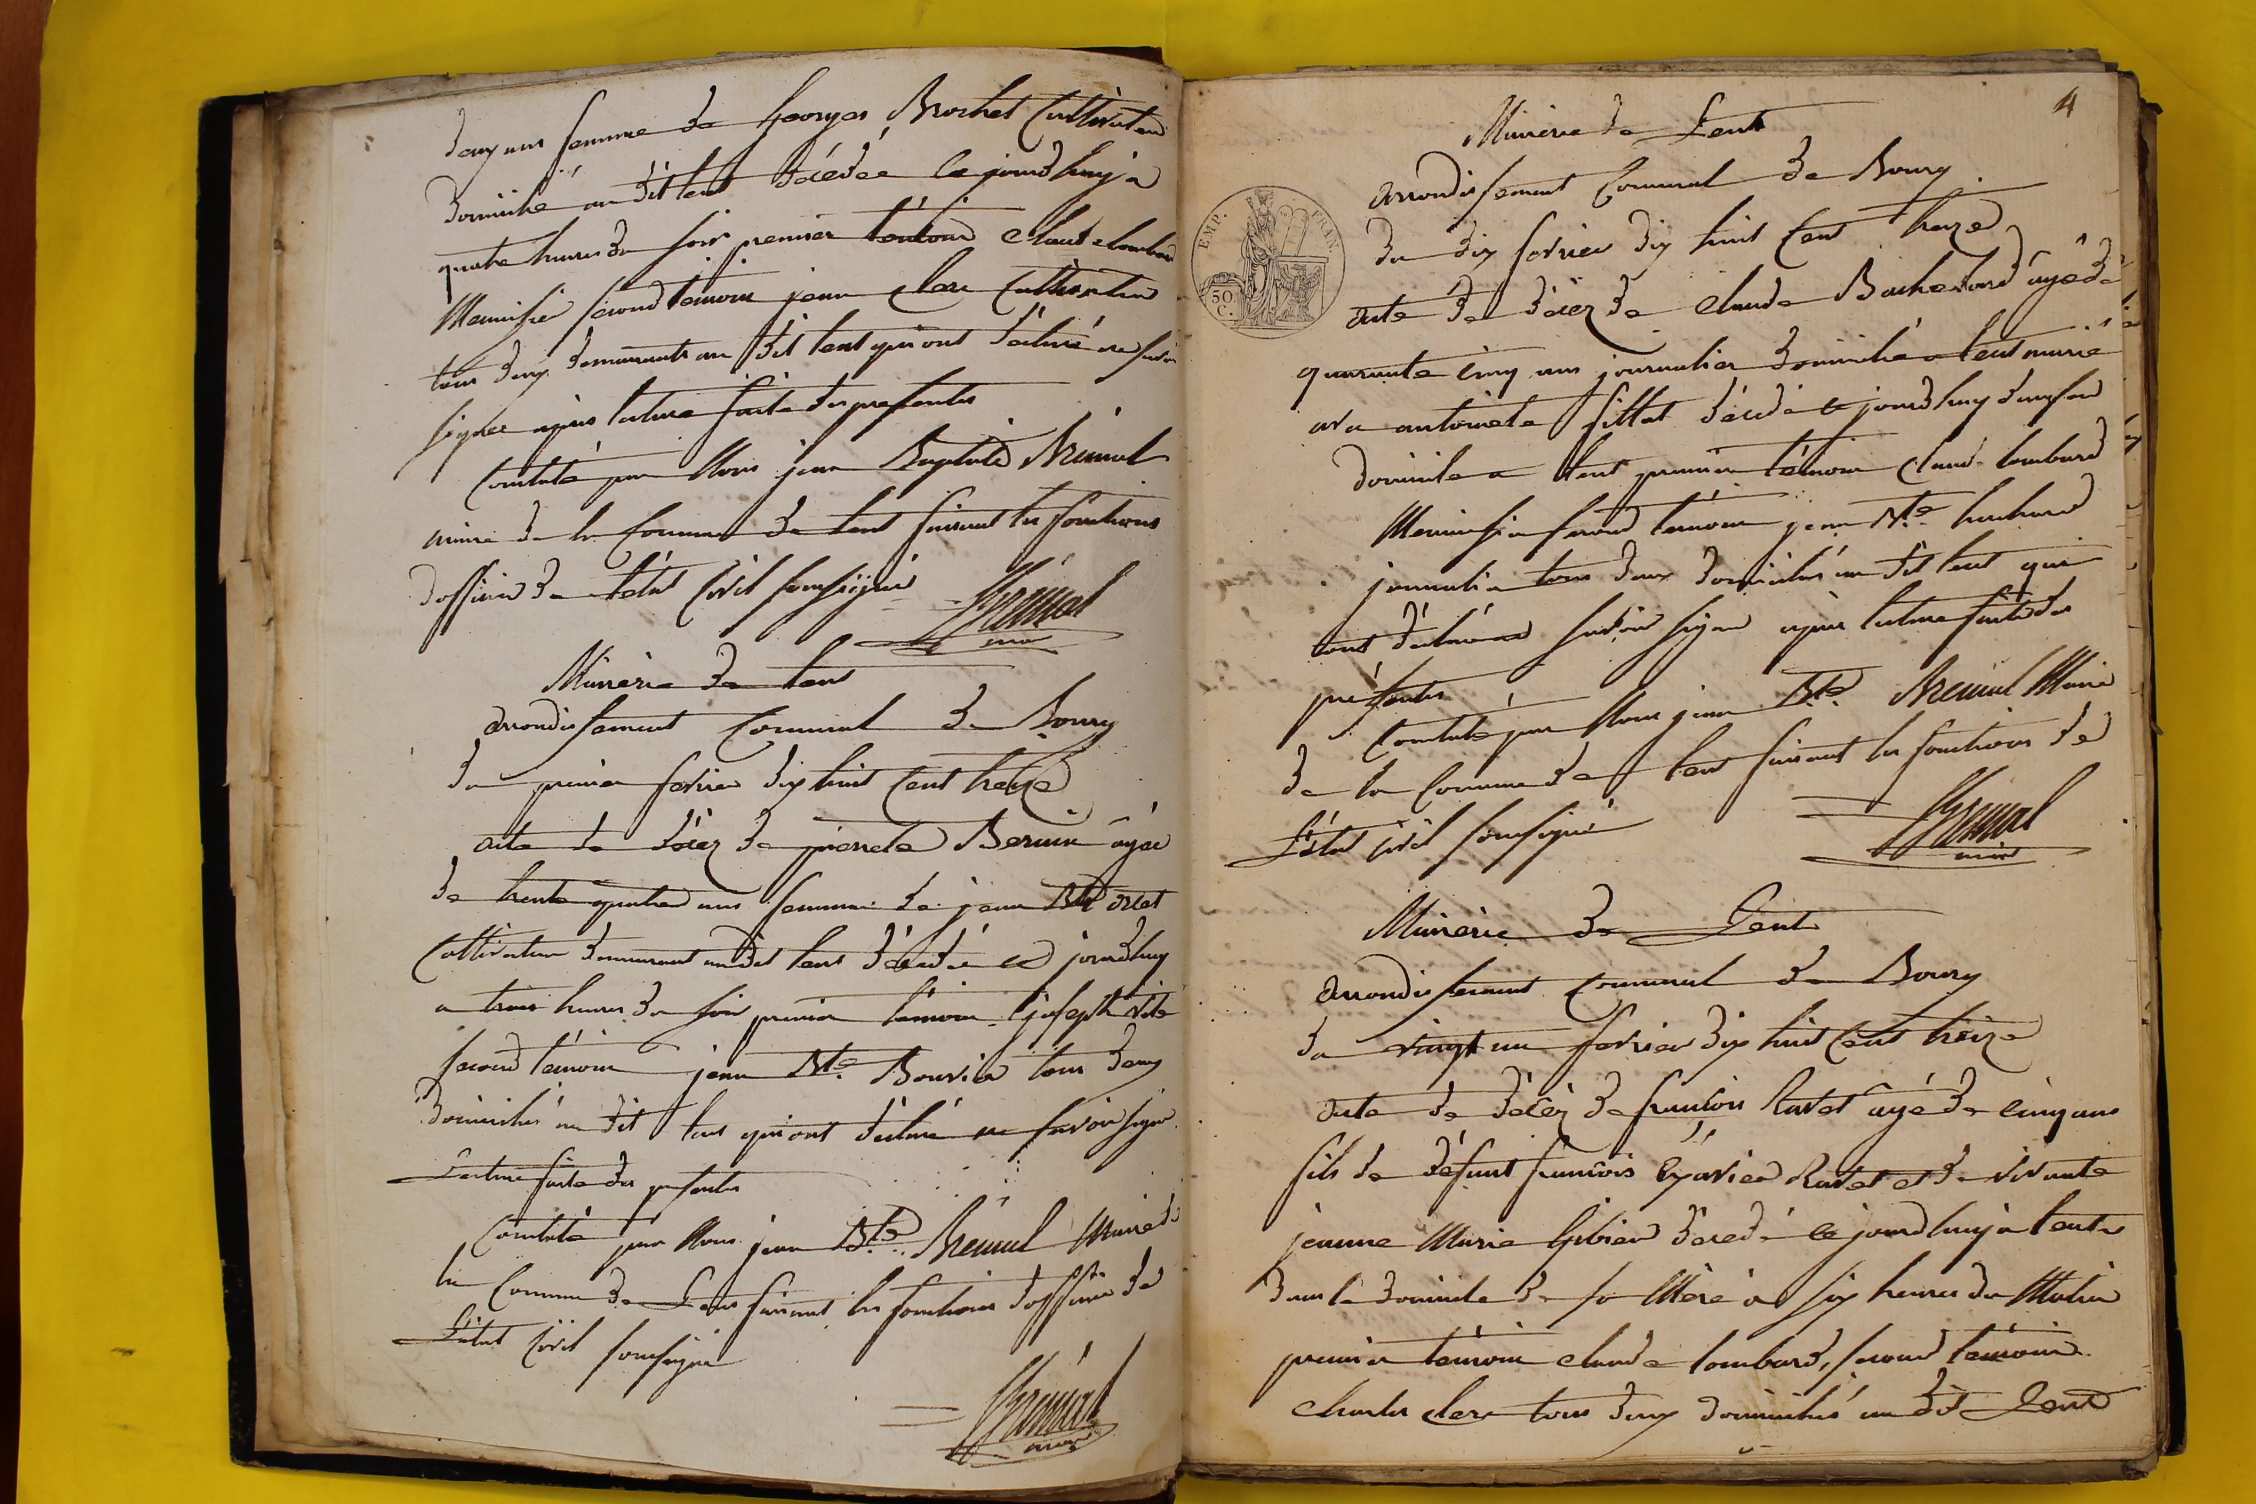 deux ans femme de Georges Brochet Cultivateur
domicilié au dit lent décédée ce jourdhuy à
quatre heures du soir premier témoin Claude lombard
Menuisier second témoin jean Clerc Cultivateur
tous deux demeurants au dit lent qui ont déclaré ne savoir
signer après lecture faite des presentes
Constaté par Nous jean Baptiste
maire de la Commune de lent faisant les fonctions
dofficier de letat Civil soussigné
maire
Mairerie de lent
arrondissement Communal de Bourg
du premier fevrier dix huit Cent treize
acte de décéz de pierrete Bernin agée
de trente quatre ans femme de jean Bte
Cultivateur demeurant au dit lent décédée ce jourdhuy
a trois heures du soir premier témoin joseph
second témoin jean Bte Bouvier tous deux
domiciliés au dit lent qui ont déclaré ne savoir signer
Lecture faite des presentes
Constaté par Nous jean Bte Maire de
la Commune de Lent faisant les fonctions dofficier de
Létat Civil soussigné
maire
4
Mairerie de Lent
arrondissement Communal de Bourg
EMP. FRAN.
50 C.
du dix fevrier dix huit Cent treize
acte de décéz de Claude Bachelard agé de
quarante cinq ans journalier domicilié a lent marié
avec antoinete fillat décédé ce jourdhuy dans son
domicile a lent premier témoin Claude lombard
Menuisier second témoin jean Bte
journalier tous deux domiciliés au dit lent qui
ont déclaré ne savoir signer après lecture faite des
présentes
Constaté par Nous jean Bte Maire
de la Commune de lent faisant les fonctions de
Létat civil soussigné
maire
Mairerie de Lent
arrondissement Communal de Bourg
du vingt un fevrier dix huit Cent treize
acte de décéz de françois Ravet agé de cinq ans
fils de défunt françois Exavier Ravet et de vivante
jeanne Marie décédé ce jourdhuy a lent
dans le domicile de sa Mère a six heures du Matin
premier témoin claude lombard, second témoin
charles clerc tous deux domiciliés au dit Lent